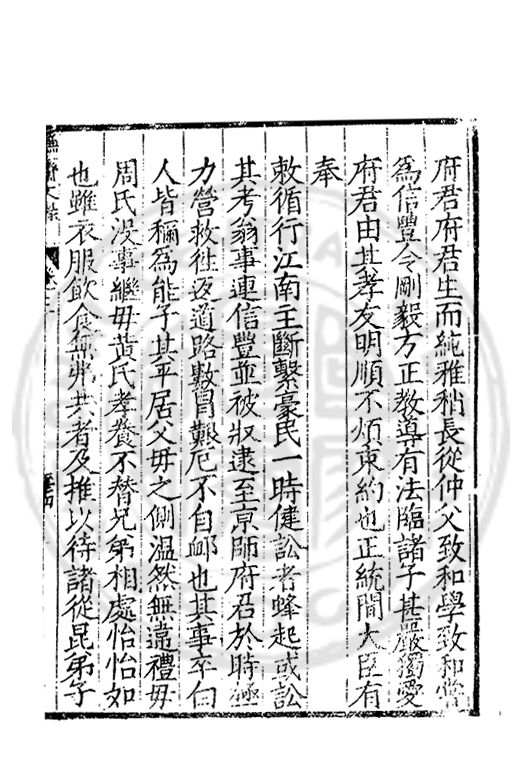 府君府君生而純雅稍長從仲父致和學致和嘗
為信豐令剛毅方正教導有法臨諸子甚嚴獨愛
府君由其孝友明順不煩束約也正統間大臣有
奉
敕循行江南主斷繫豪民一時健訟者蜂起或訟
其考翁事連信豐並被收逮至京師府君於時極
力營救徃返道路數冒艱厄不自卹也其事卒白
人皆稱為能子其平居父母之側温然無違禮母
周氏没事繼母黄氏孝養不替兄弟相處怡怡如
也雖衣服飲食無弗共者及推以待諸從昆弟子